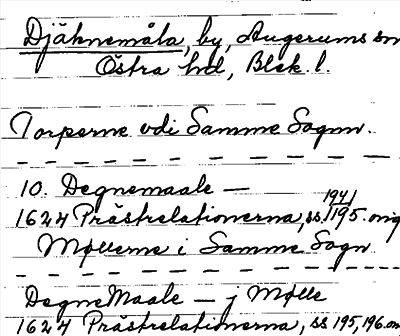 Djäknemåla, by, Augerums sn
Östra hd, Blek. l.
Torperne vdi Samme Sognn.
10. Degnemaale —
1624 Prästrelationerna, ss. 194/195. orig
Møllerne i Samme Sogn
Degne Maale — j Mølle
1624 Prästrelationerna, ss 195, 196. or